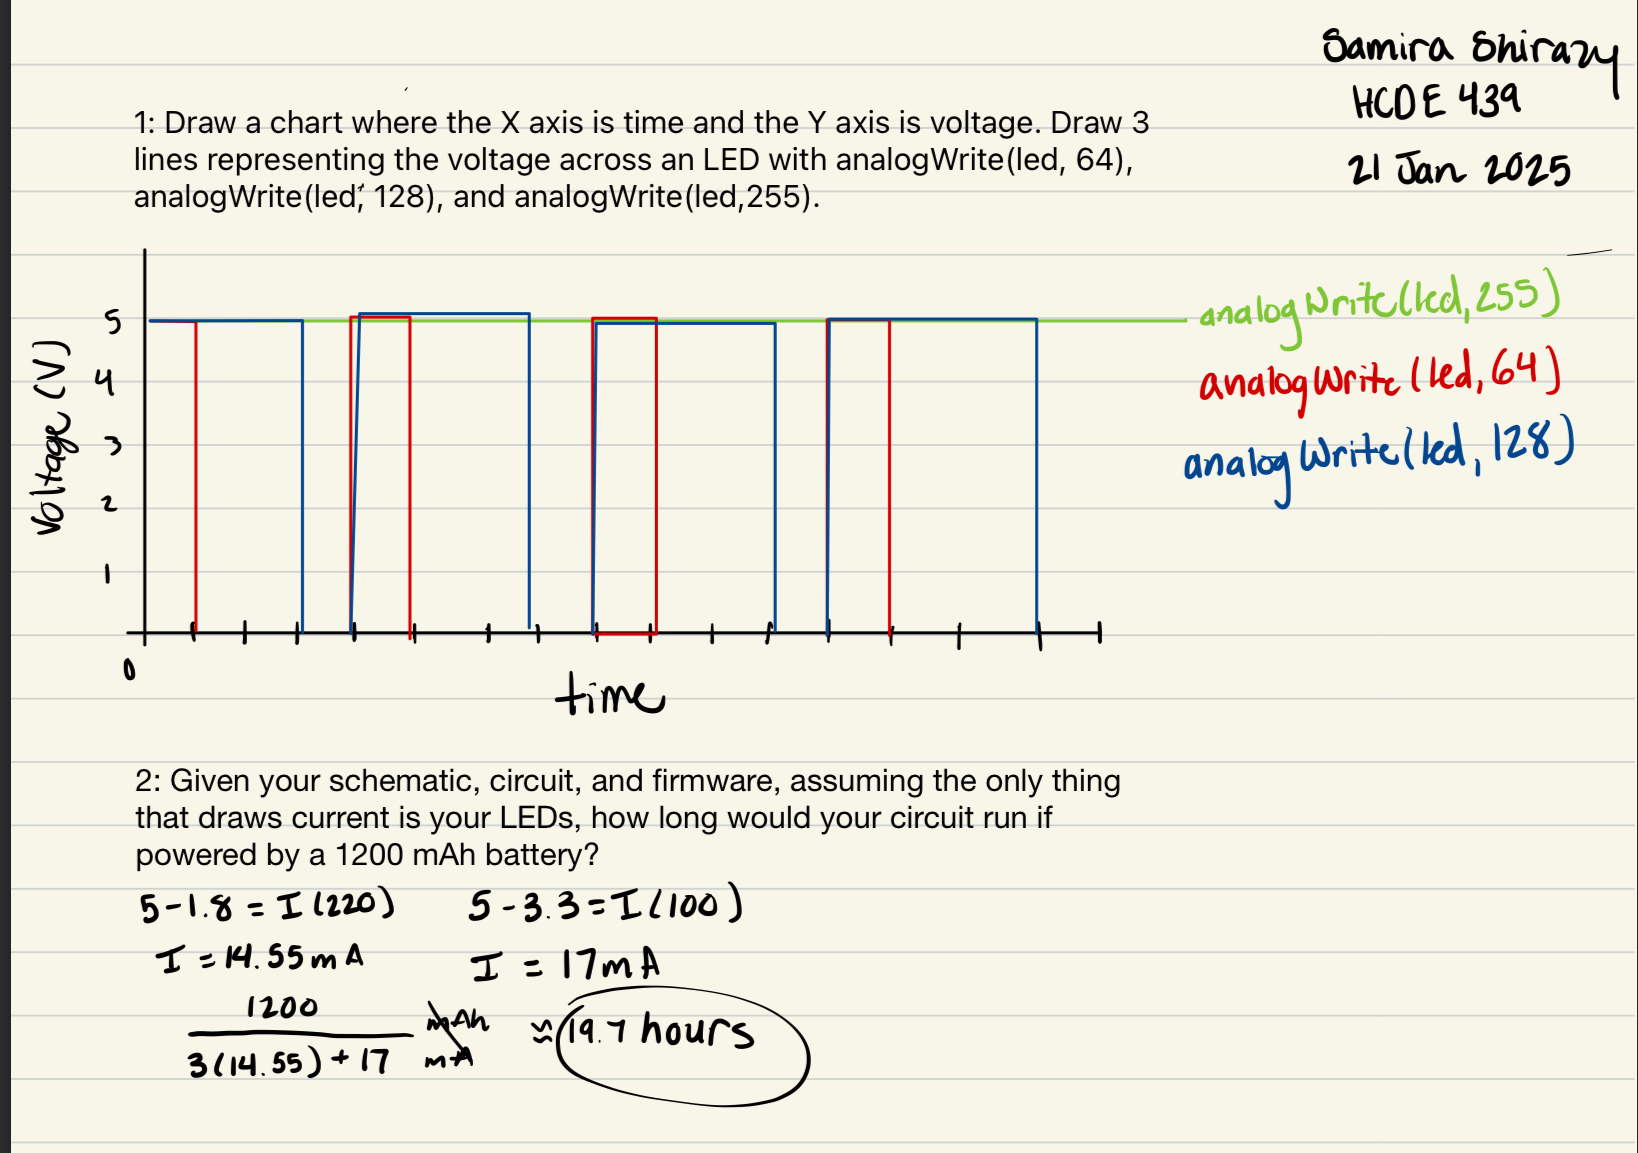 Samira Shirazy
HCDE 439
21 Jan 2025
1: Draw a chart where the X axis is time and the Y axis is voltage. Draw 3
lines representing the voltage across an LED with analogWrite(led, 64),
analogWrite(led, 128), and analogWrite(led,255).
analogWrite(led,255)
analogWrite(led,64)
analogWrite(led,128)
Voltage (V)
5
4
3
2
1
0
time
2: Given your schematic, circuit, and firmware, assuming the only thing
that draws current is your LEDs, how long would your circuit run if
powered by a 1200 mAh battery?
5-1.8 = I(220)
5-3.3 = I(100)
I = 14.55mA
I = 17mA
1200
3(14.55) + 17
mAh
mA
≈ 19.7 hours